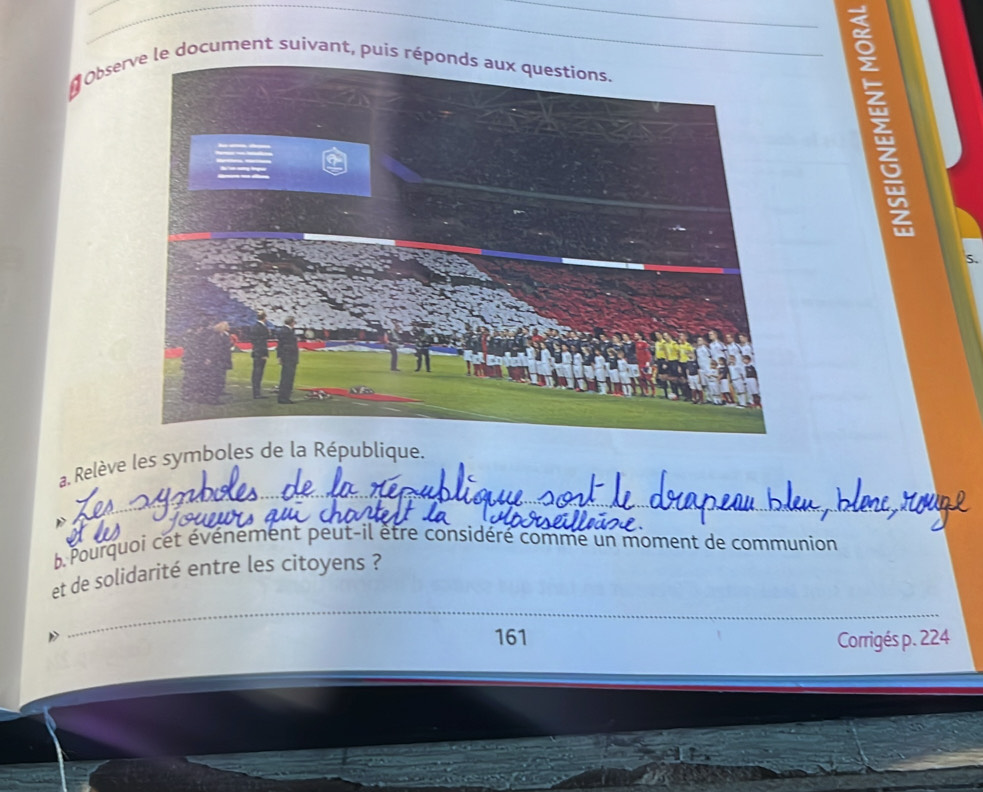 ENSEIGNEMENT MORAL
Observe le document suivant, puis réponds aux questions.
s.
a. Relève les symboles de la République.
Les symboles de la république sont le drapeau bleu, blanc, rouge
et les joueurs qui chantent la Marseillaise.
b. Pourquoi cet événement peut-il être considéré comme un moment de communion
et de solidarité entre les citoyens ?
161
Corrigés p. 224